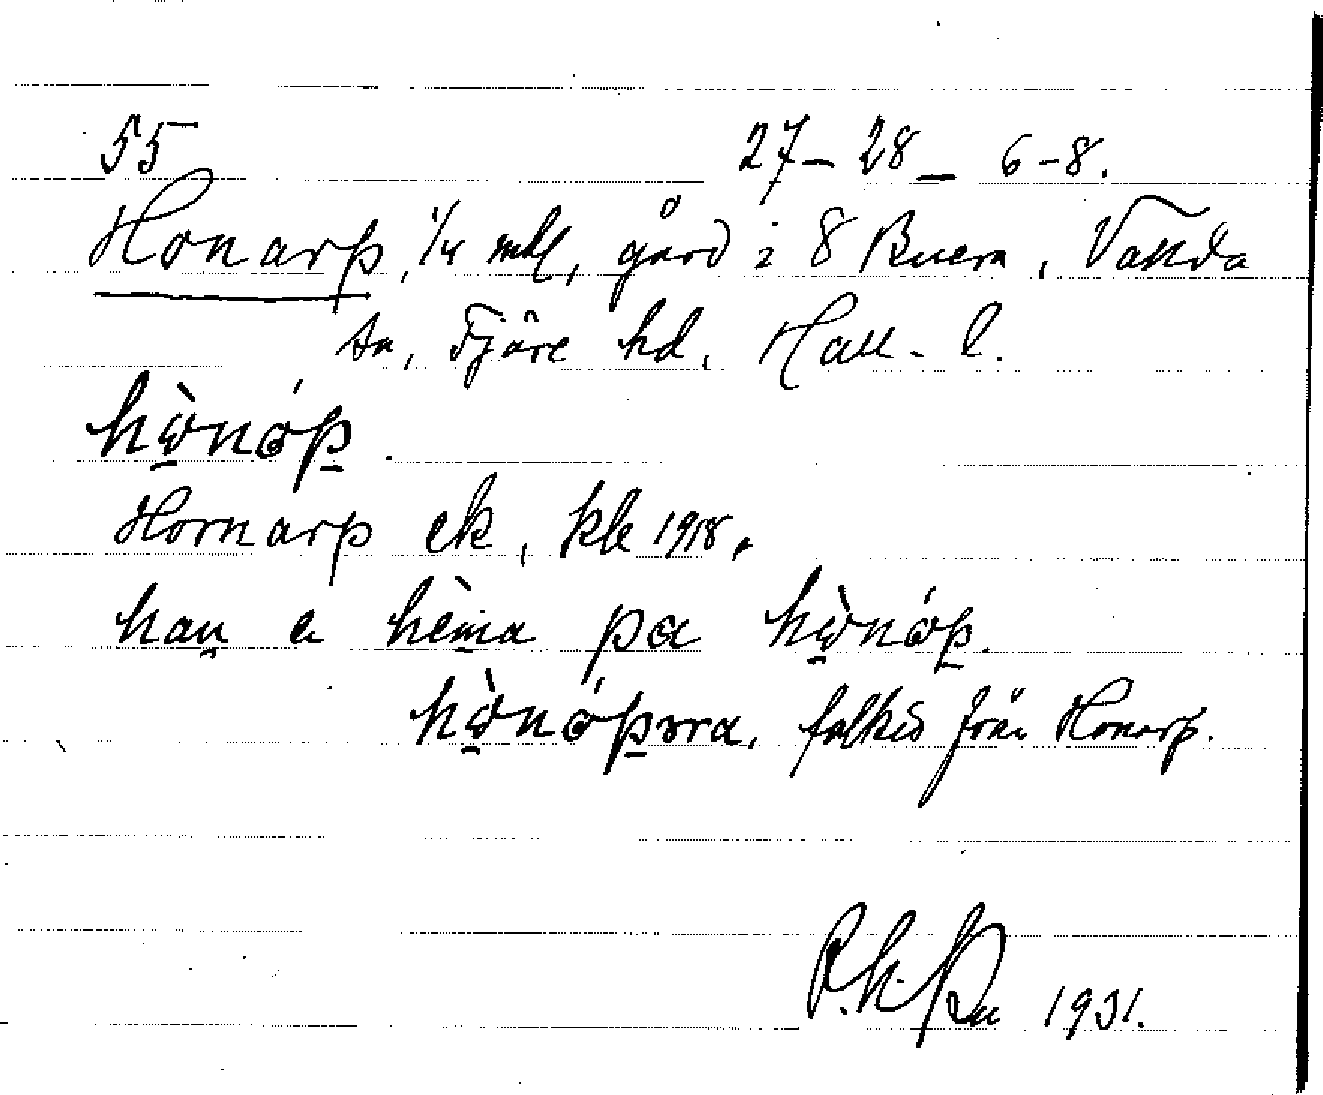 55 27–28– 6–8.
Honarp, 1/4 mtl, gård i 8 Buera, Vallda
sn, Fjäre hd. Hall. l.
hònóp.
Hornarp ek, kb 1918.
han e hèma pa hònóp.
hònópᴈra, folket från Honarp.
1931.